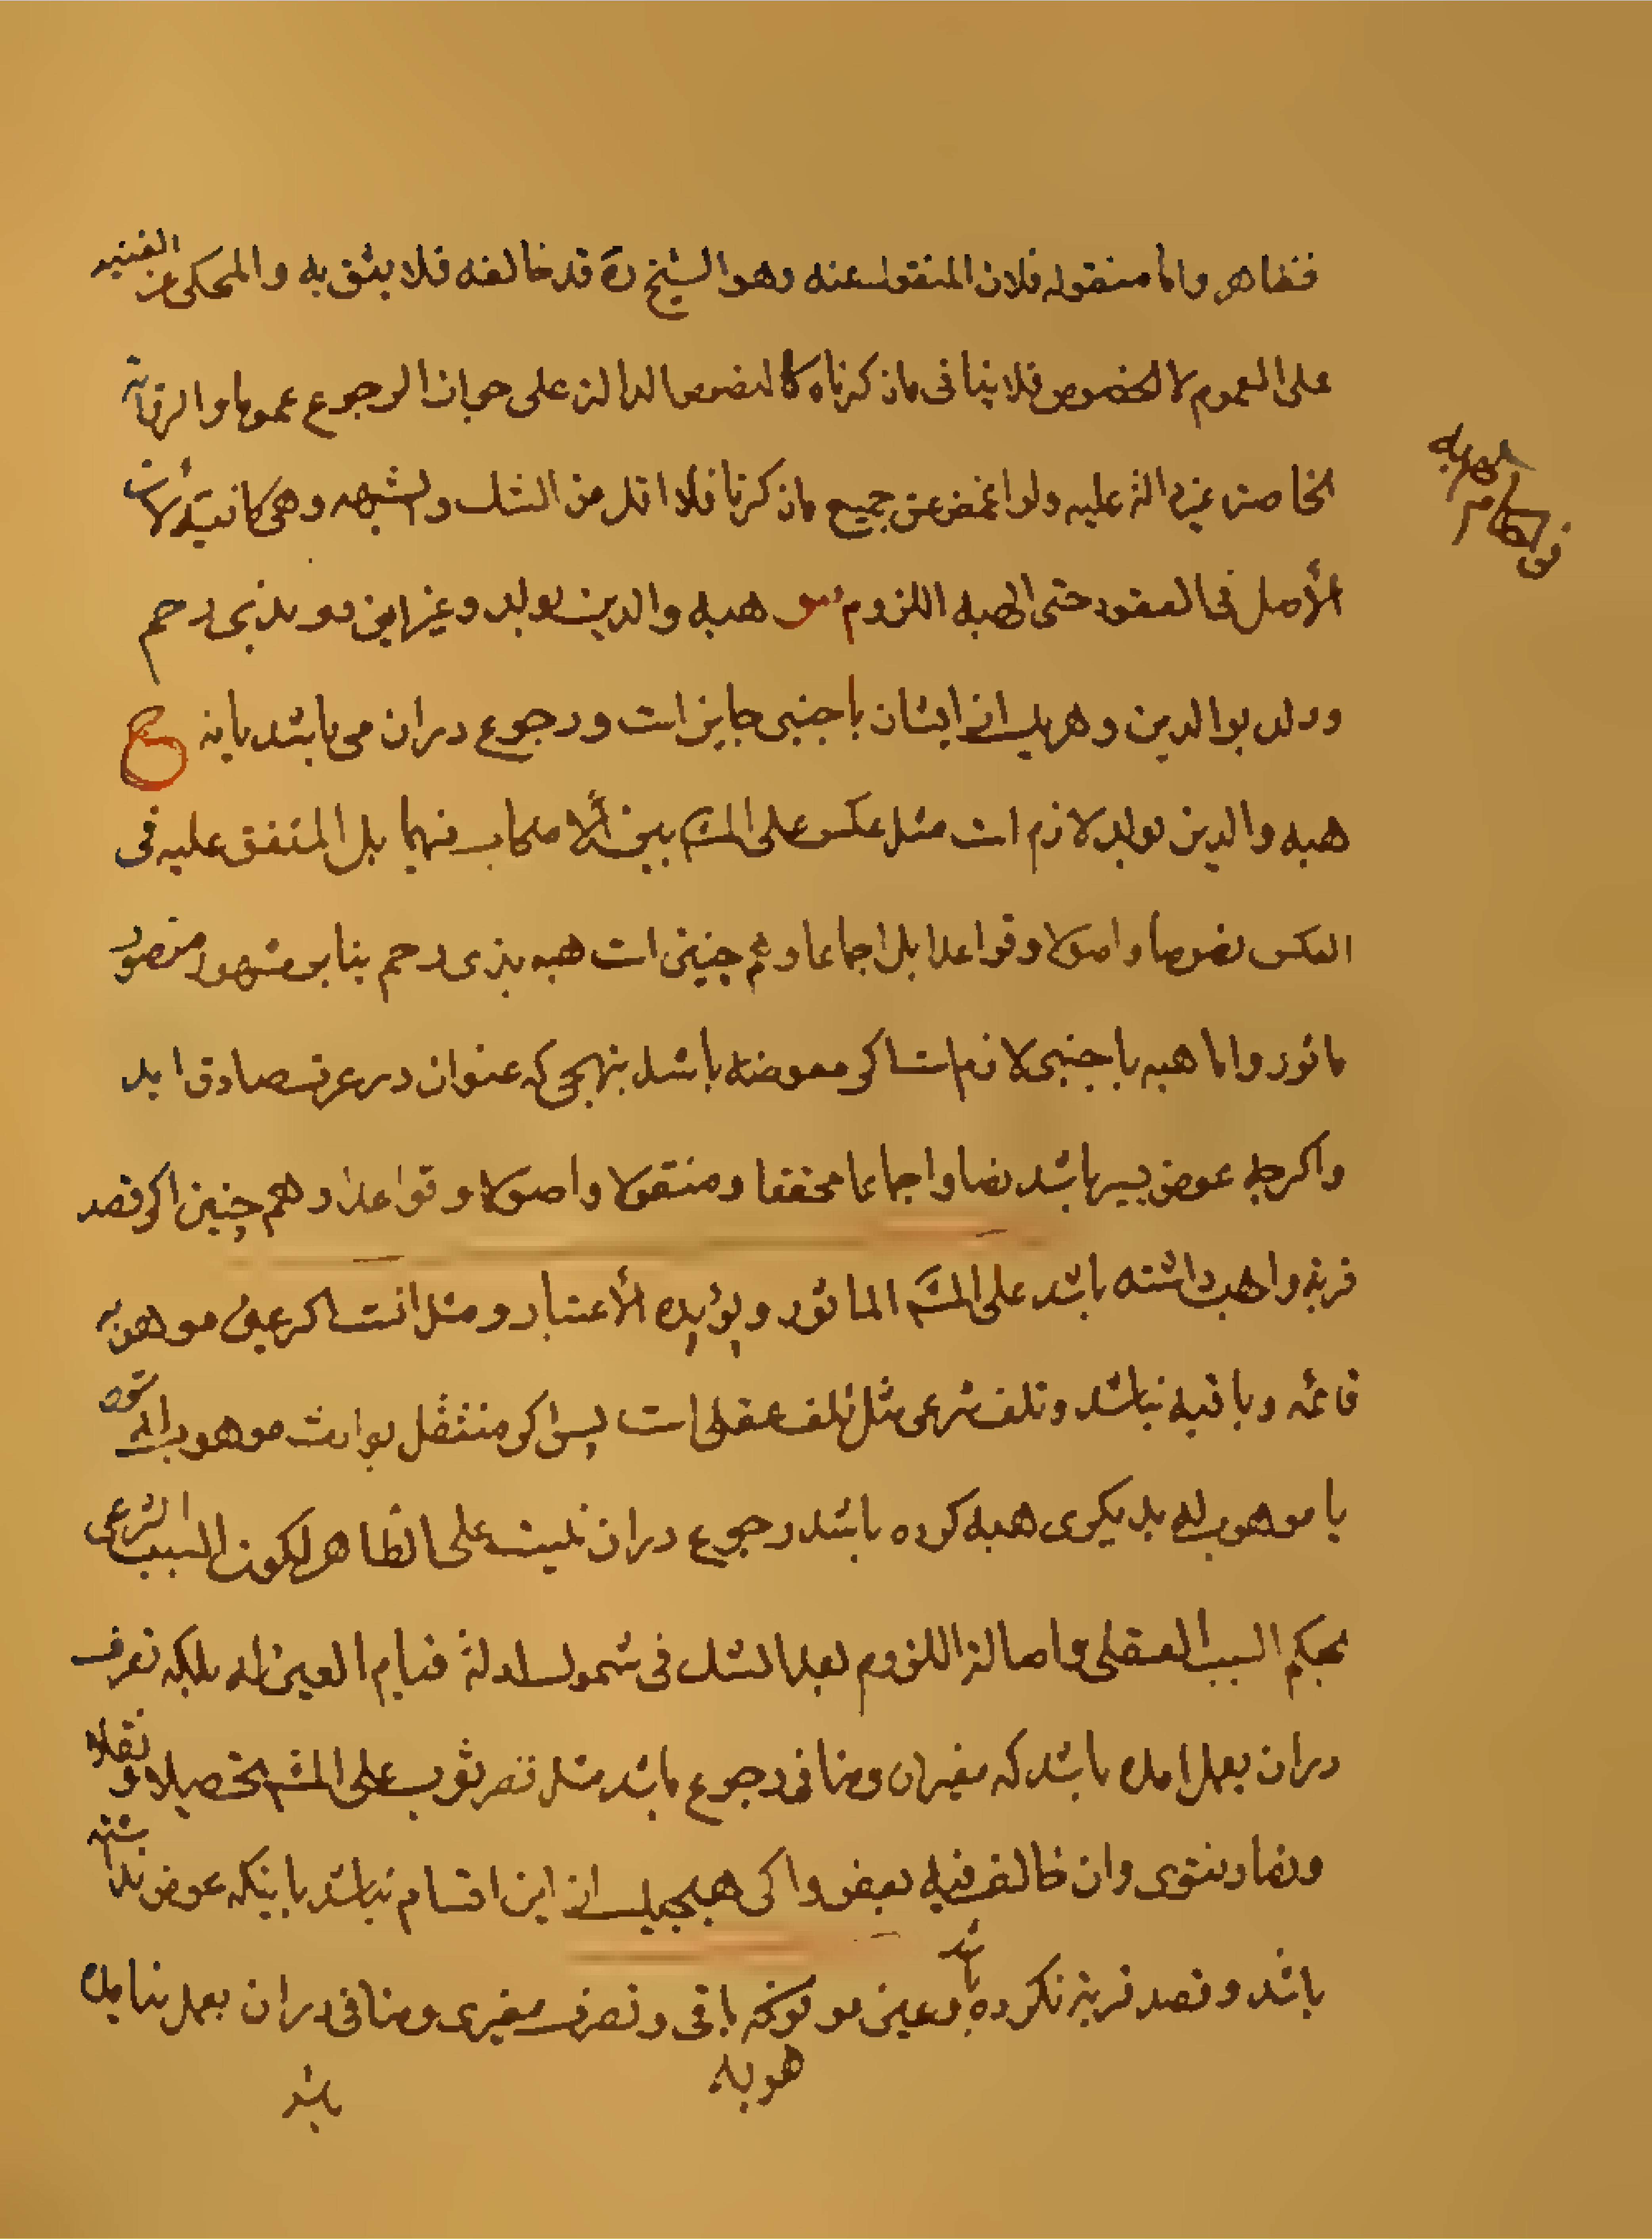 فظاهر واما منقوله فلان المنقول عنه وهو الشیخ ره قد خالفه فلا یثق به والمحکی عن الغنیه
علی العموم لا الخصوص فلا ینافی ماذکرناه کالنصوص الدالة علی جواز الرجوع عموما والروایة
الخاصة غیر دالة علیه ولو اغمض عن جمیع ماذکرنا فلا اقل من الشک والشبهه وهی کافیة لان
الأصل فی العقود حتی الهبه اللزوم هبه والدین بولد و غیر این دو بذی رحم
و ولد بوالدین و هریک از ایشان باجنبی جایز است و رجوع دران می باشد یا نه ج
هبه والدین بولد لازم است مثل عکس علی المشهور بین الأصحاب فیهما بل المتفق علیه فی
العکس نصوصا واصولا وقواعدا بل اجماعا وهم چنین است هبه بذی رحم بنابر مشهور منصور
ماثور واما هبه باجنبی لازم است اکر معوضه باشد بنهجی که عنوان در عرف صادق اید
واکرچه عوض یسیر باشد نصا واجماعا محققا ومنقولا واصولا وقواعدا وهم چنین اکر قصد
قربة واهب داشته باشد علی المشهور الماثور ویؤیده الأعتبار و مثل انست اکر عین موهوبه
قائمه وباقیه نباشد وتلف شرعی مثل تلف عقلی است پس اکر منتقل بوارث موهوب له شود
یا موهوب له بدیکری هبه کرده باشد رجوع دران نیست علی الظاهر لکون السبب الشرعی
بحکم السبب العقلی واصالة اللزوم بعد الشک فی شمول ادلة قیام العین له بلکه تصرف
دران بعمل امده باشد که مغیران ومنافی رجوع باشد مثل قصر ثوب علی المشهور تحصیلا و نقلا
ونصا وفتوی وان خالف فیه بعض واکر هیچیک از این اقسام نباشد باینکه عوض نداشته
باشد وقصد قربة نکرده باشد وعین موهوبه باقی وتصرف مغیری ومنافی دران بعمل نیامده
هوبه
باشد